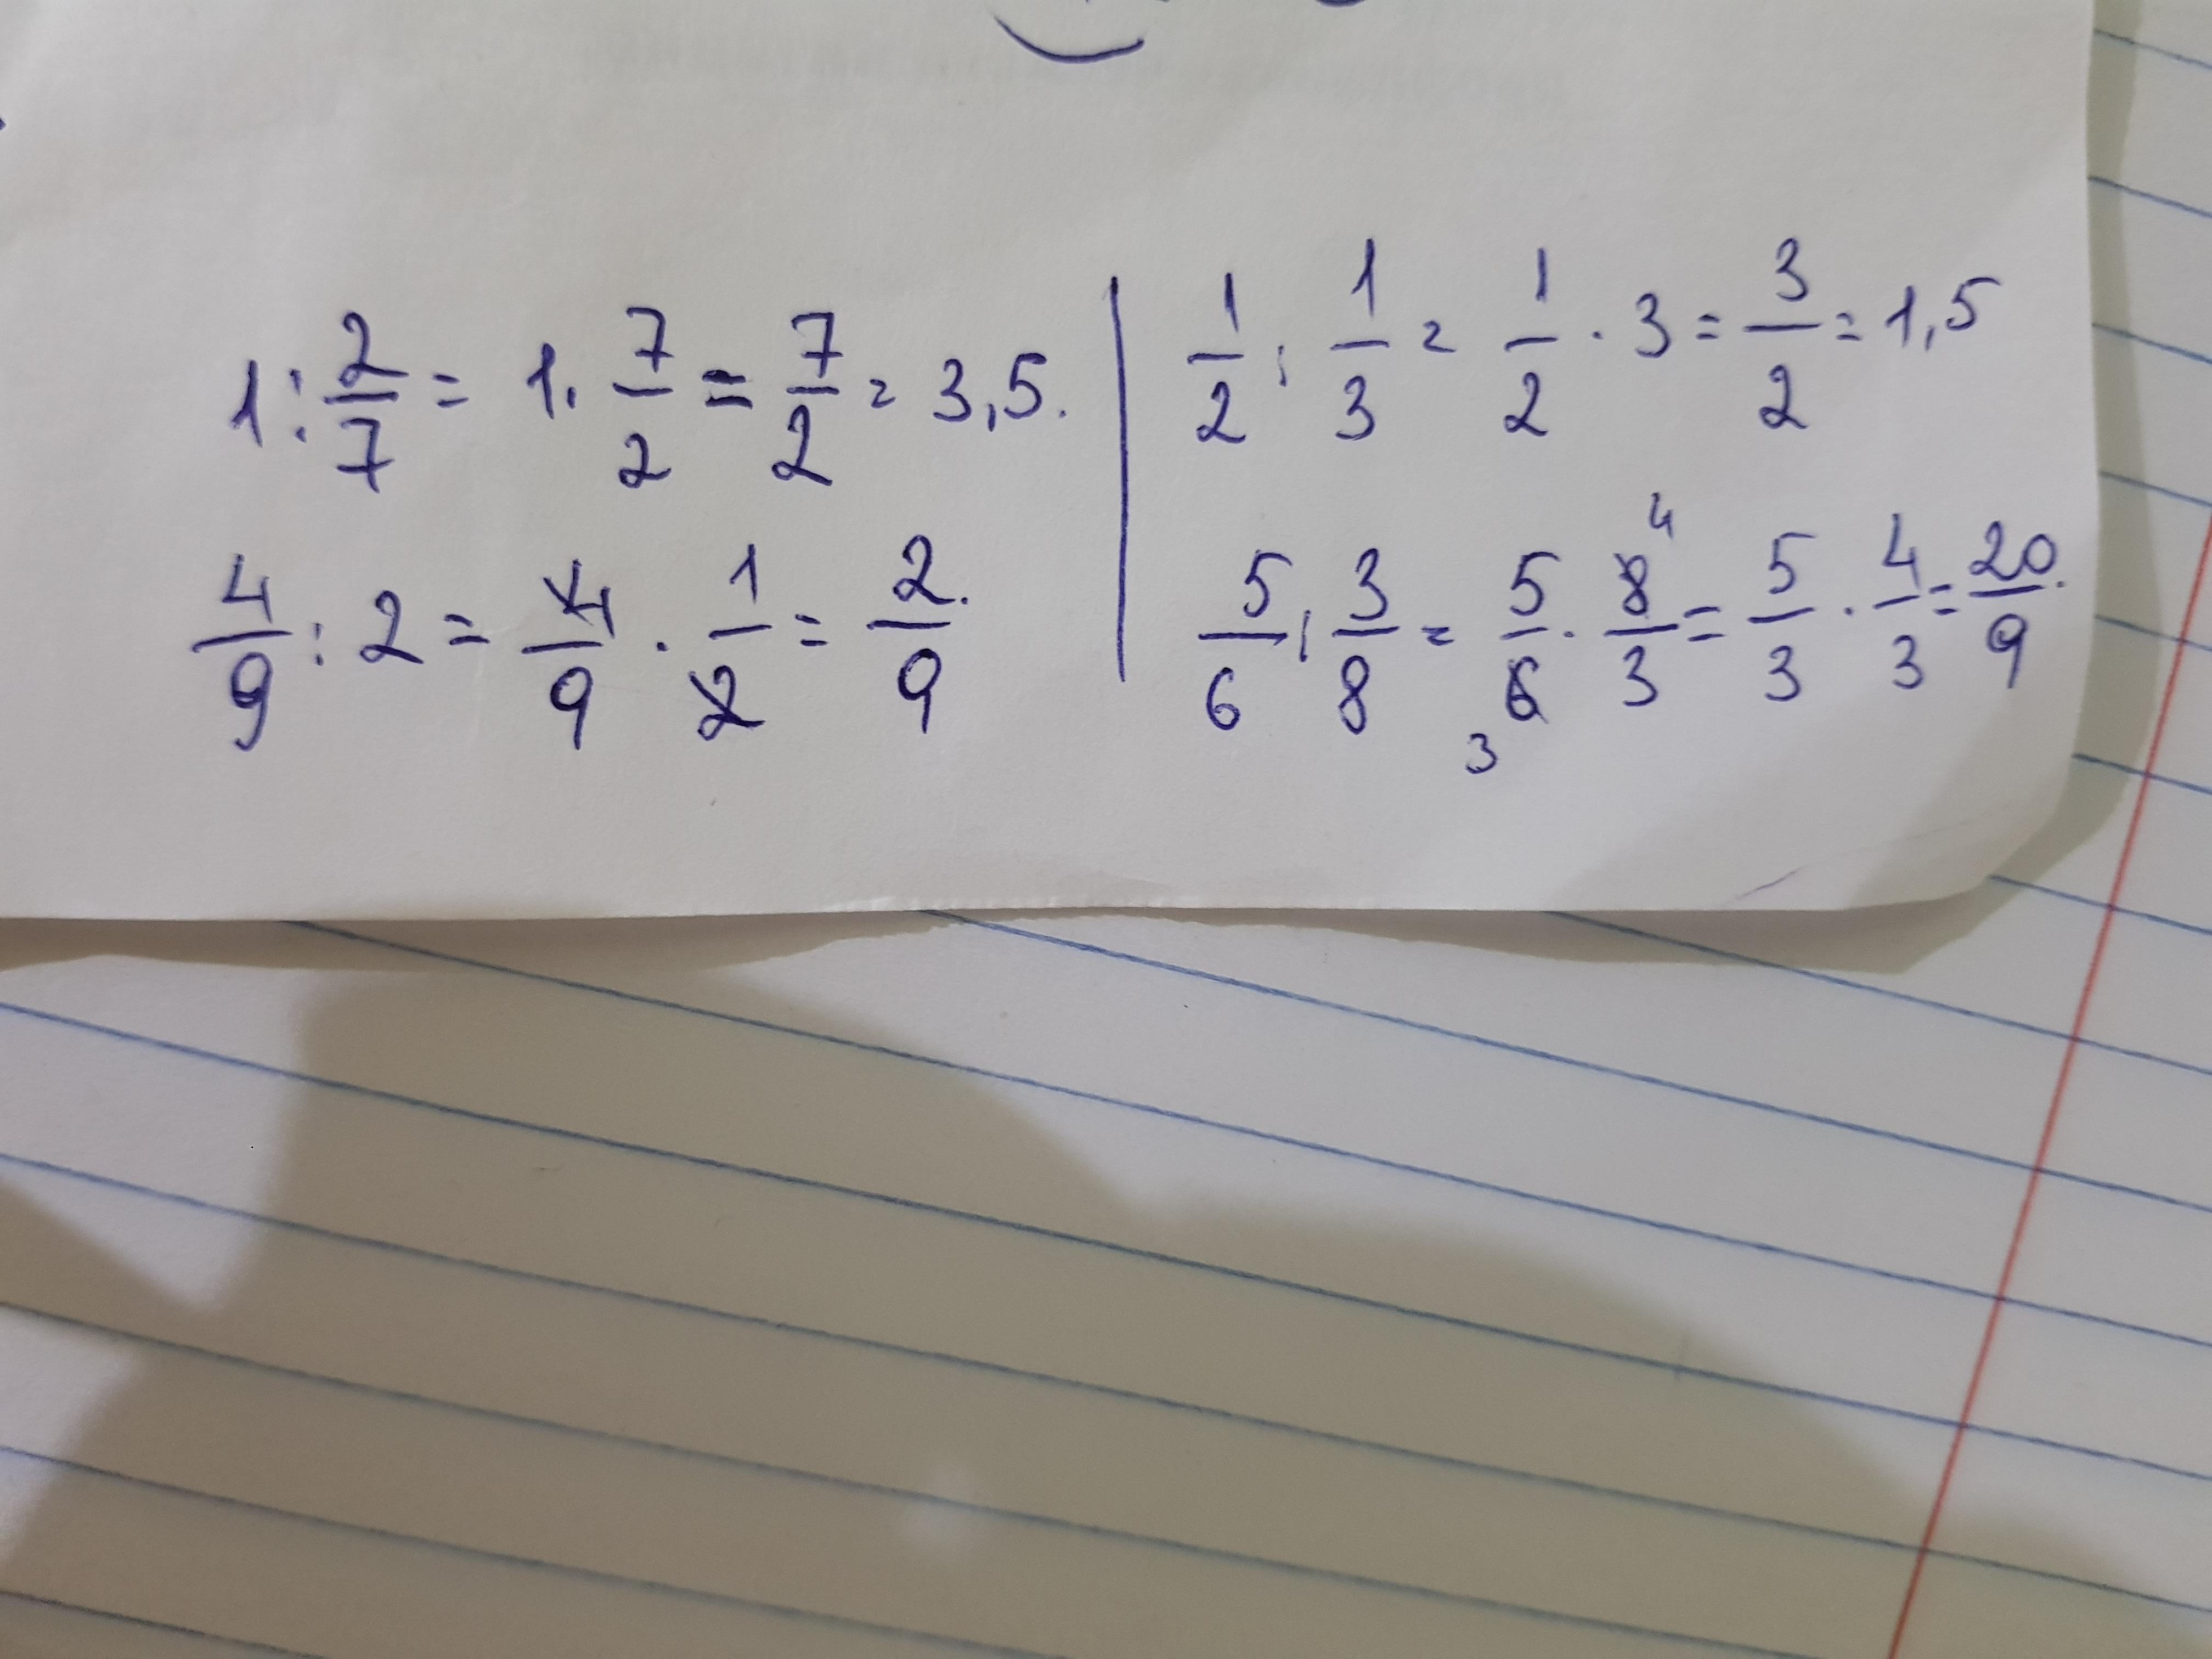 1 : 2/7 = 1 · 7/2 = 7/2 = 3,5.
4/9 : 2 = 4/9 · 1/2 = 2/9.
1/2 : 1/3 = 1/2 · 3 = 3/2 = 1,5
5/6 : 3/8 = 5/6 3 · 8 4/3 = 5/3 · 4/3 = 20/9.